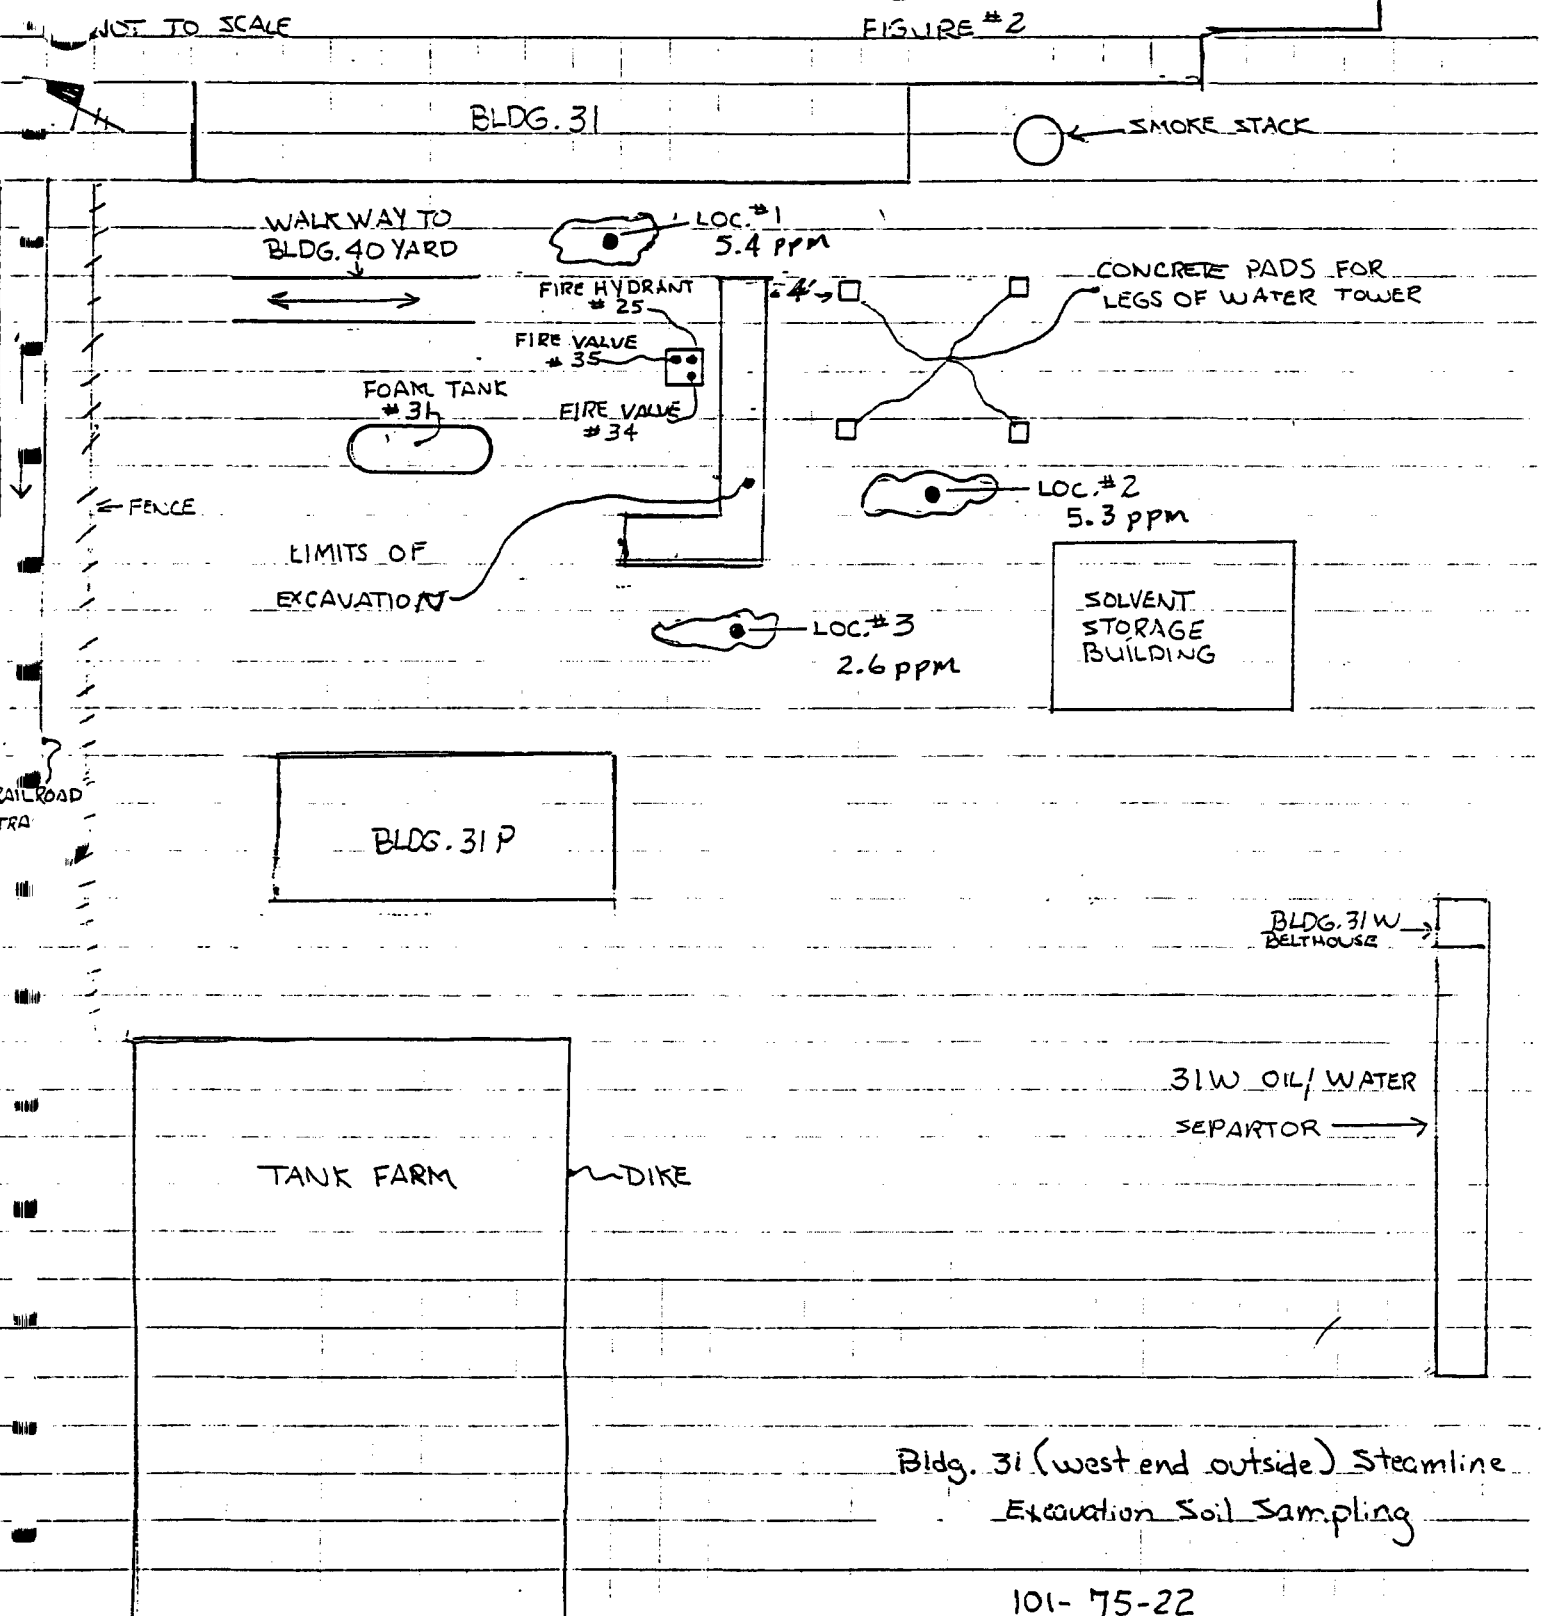 NOT TO SCALE
FIGURE #2
BLDG. 31
SMOKE STACK
WALKWAY TO
BLDG. 40 YARD
LOC. #1
5.4 ppm
FIRE HYDRANT
# 25
4'
CONCRETE PADS FOR
LEGS OF WATER TOWER
FIRE VALVE
# 35
FOAM TANK
# 31
FIRE VALVE
# 34
LOC. #2
5.3 ppm
FENCE
LIMITS OF
EXCAVATION
LOC. #3
2.6 ppm
SOLVENT
STORAGE
BUILDING
RAILROAD
TRA
BLDG. 31 P
BLDG. 31W
BELTHOUSE
31W OIL/WATER
SEPARTOR
TANK FARM
DIKE
Bldg. 31 (west end outside) Steamline
Excavation Soil Sampling
101-75-22